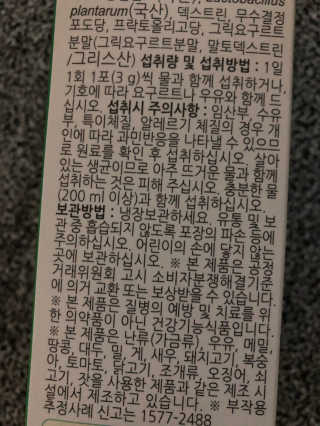 plantarum(국산), 덱스트린, 무수결정
포도당, 프락토올리고당, 그릭요구르트
분말(그릭요구르트분말, 말토덱스트린
/그리스산) 섭취량 및 섭취방법 : 1일
1회 1포(3 g)씩 물과 함께 섭취하거나,
기호에 따라 요구르트나 우유와 함께 드
십시오. 섭취시 주의사항 : 임산부, 수유
부, 특이체질, 알레르기 체질의 경우 개
인에 따라 과민반응을 나타낼 수 있으므
로 원료를 확인 후 섭취하십시오. 살아
있는 생균이므로 아주 뜨거운 물과 함께
섭취하는 것은 피해 주십시오. 충분한 물
(200 ml 이상)과 함께 섭취하십시오.
보관방법 : 냉장보관하세요. 유통 및 보
관 중 흡습되지 않도록 포장의 파손 등에
주의하십시오. 어린이의 손에 닿지 않는
곳에 보관하십시오. ※ 본 제품은 공정
거래위원회 고시 소비자분쟁해결기준
에 의거 교환 또는 보상받을 수 있습니다.
※ 본 제품은 질병의 예방 및 치료를 위
한 의약품이 아닌 건강기능식품입니다.
※ 본 제품은 난류(가금류), 우유, 메밀,
땅콩, 대두, 밀, 게, 새우, 돼지고기, 복숭
아, 토마토, 닭고기, 조개류, 오징어, 쇠
고기, 잣을 사용한 제품과 같은 제조 시
설에서 제조하고 있습니다. ※ 부작용
추정사례 신고는 1577-2488